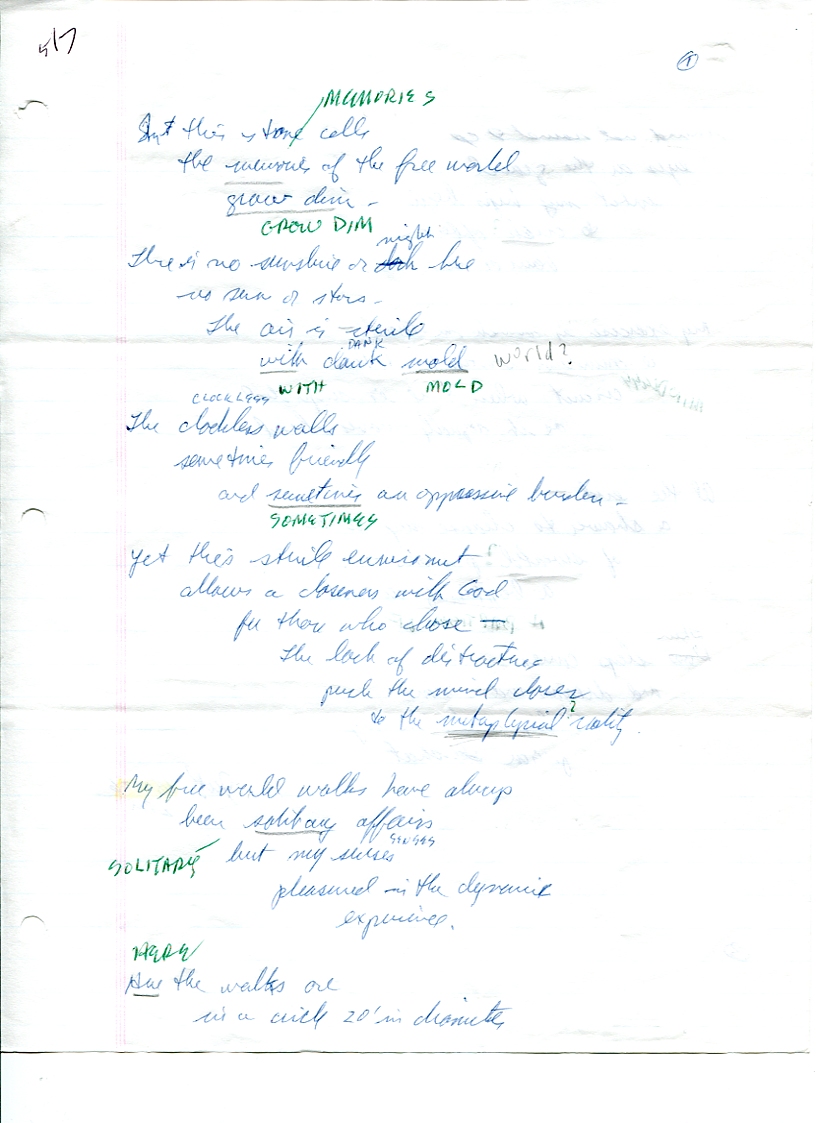 5/7
1
MEMORIES
But this stone calls
the memories of the free world
grow dim -
GROW DIM
night
There is no sunshine or here
no sun or stars -
The air is sterile
DANK
with dank mold world?
CLOCKLESS WITH MOLD
The clockless walls
sometimes friendly
and sometimes an oppressive burden -
SOMETIMES
Yet this sterile environment
allows a closeness with God
for those who chose
The lack of distractions
push the mind closer
?
to the metaphysical reality.
My free world walks have always
been solitary affairs
SENSES
SOLITARY but my senses
pleasured in the dynamic
experience.
HERE
Here the walks are
in a circle 20' in diameter